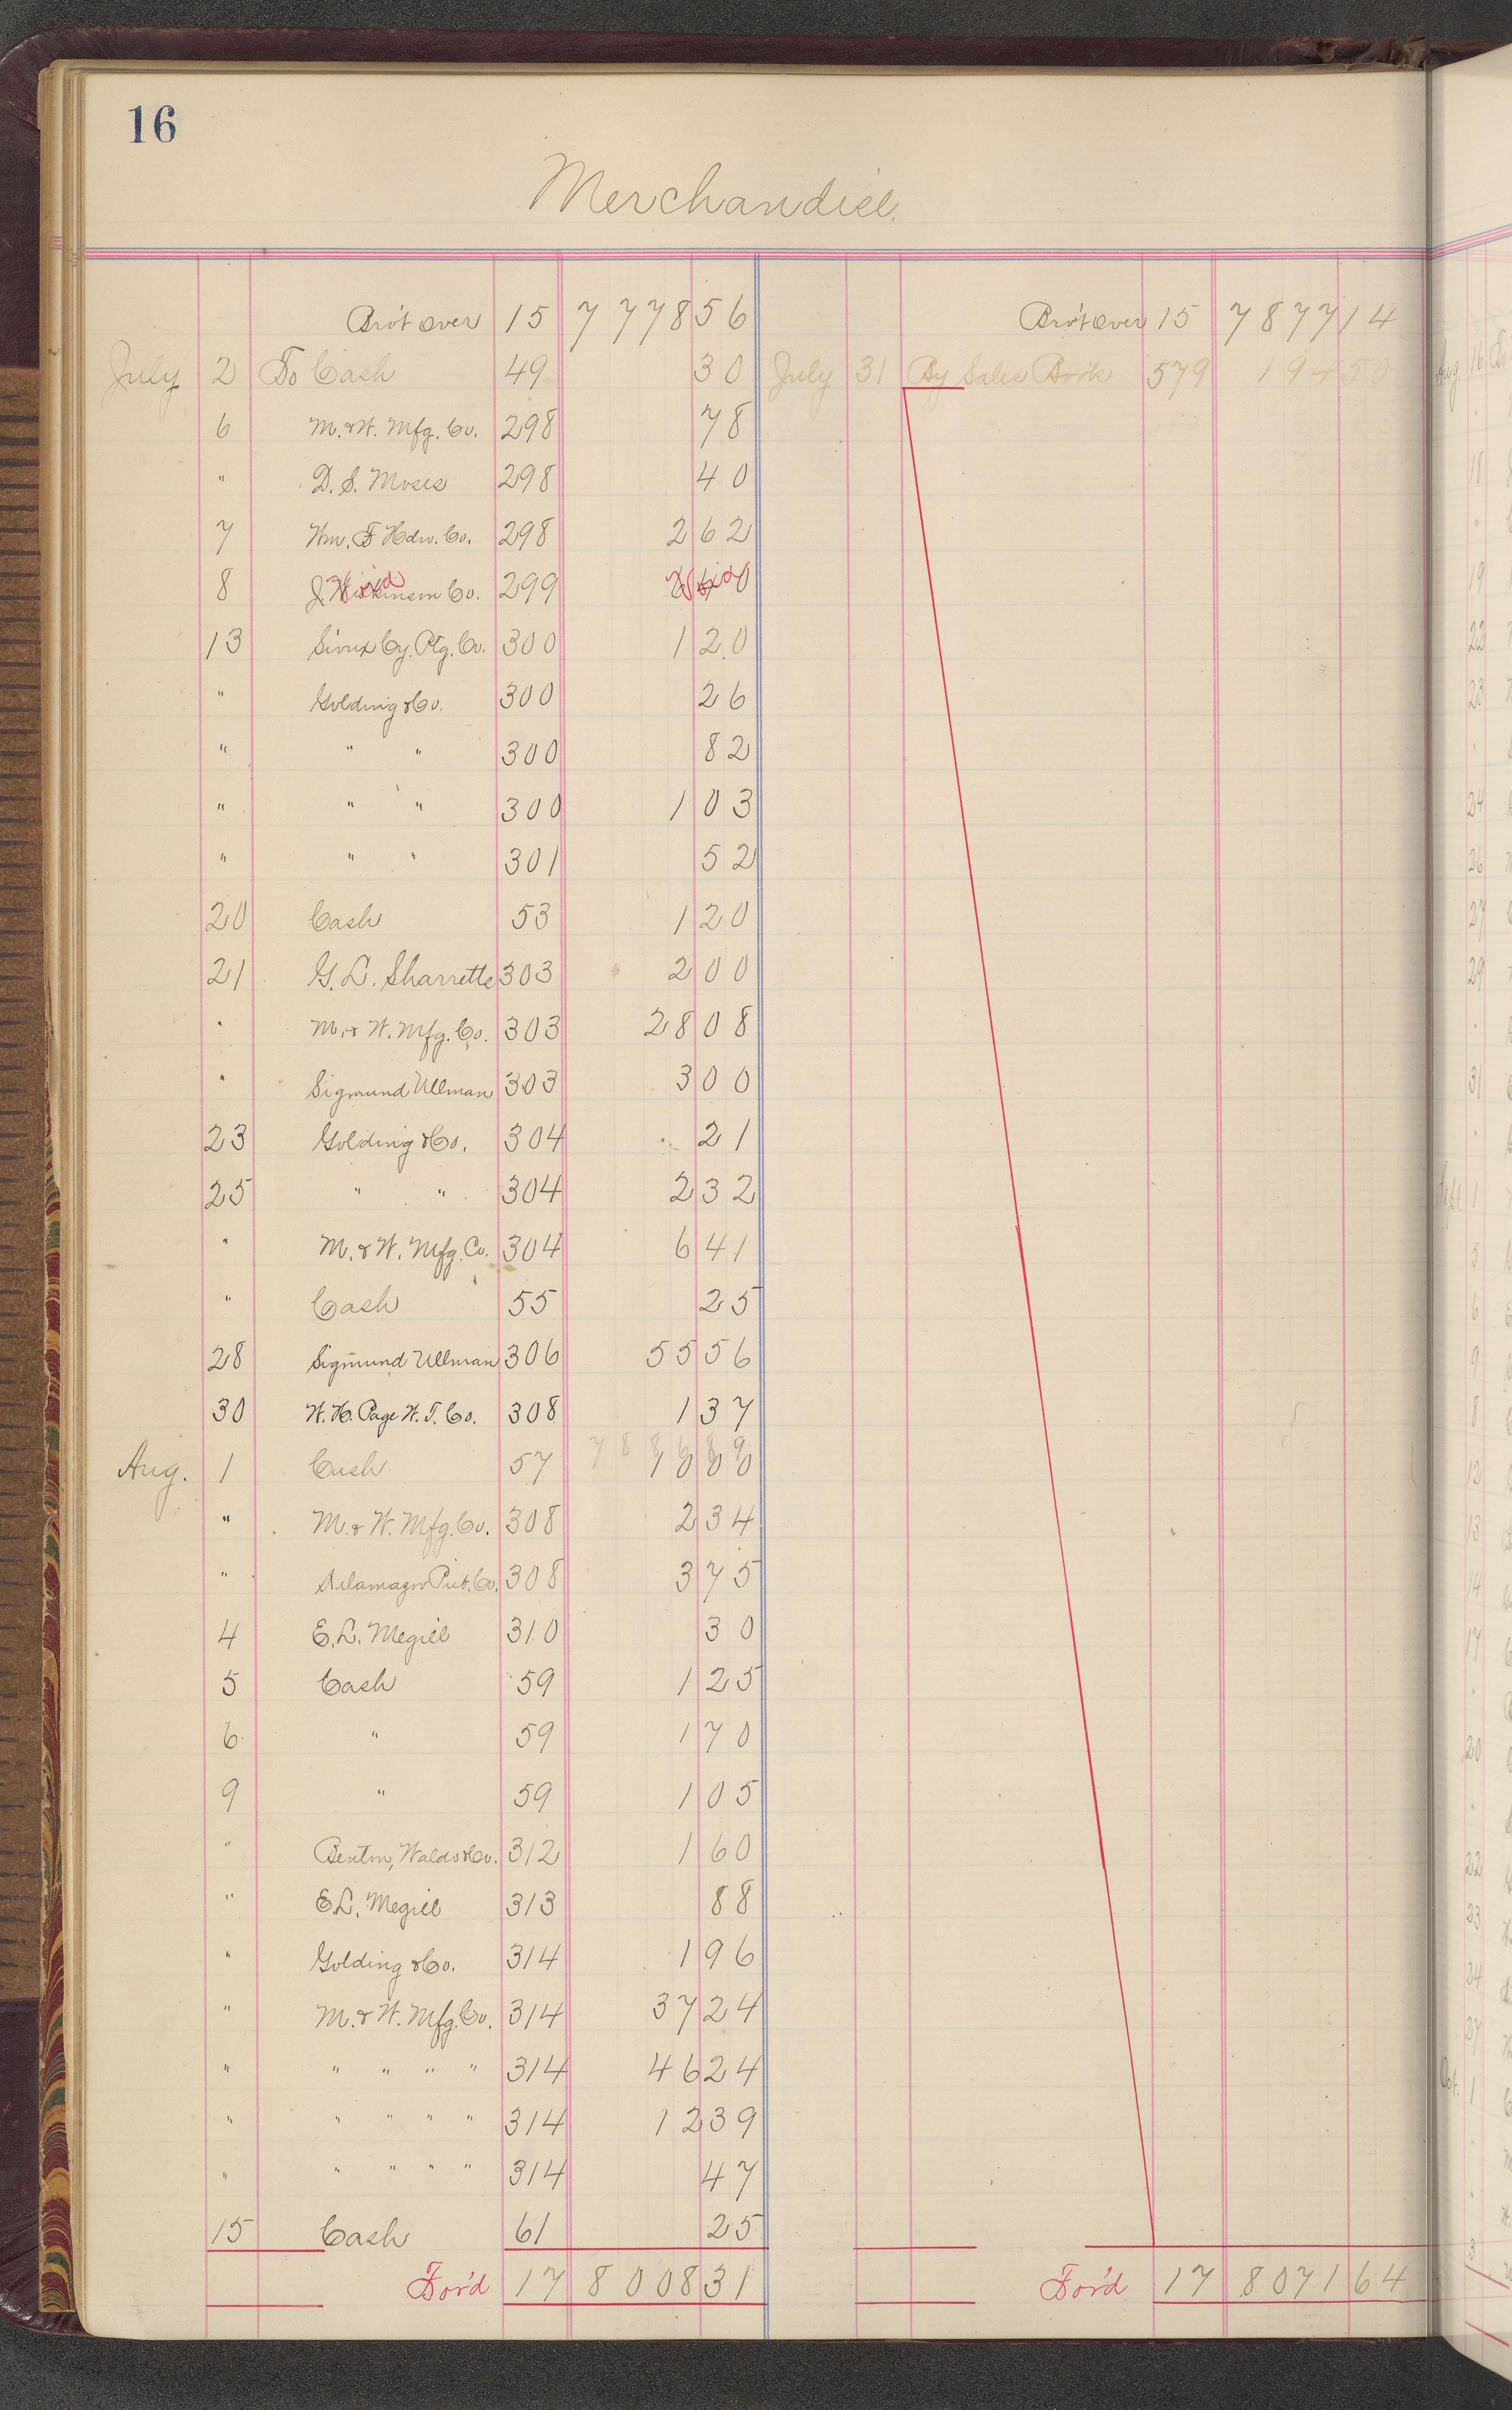 16
Merchandise.
Bro't over 15 7778 56 Bro't over 15 7877 14
July 2 To Cash 49 30 July 31 By Sales Book 579 194 50
6 M. & W. Mfg. Co. 298 78
" D. S. Moses 298 40
7 Wm. F Hdw. Co. 298 2 62
8 Void 299 Void
13 Sioux Cy. Ptg. Co. 300 1 20
" Golding & Co. 300 26
" " " 300 82
" " " 300 1 03
" " " 301 52
20 Cash 53 1 20
21 G. L. Sharrette 303 2 00
" M. & W. Mfg. Co. 303 28 08
" Sigmund Ullman 303 3 00
23 Golding & Co. 304 21
25 " " 304 2 32
" M. & W. Mfg. Co. 304 6 41
" Cash 55 25
28 Sigmund Ullman 306 55 56
30 W. H. Page W. T. Co. 308 1 37
Aug. 1 Cash 57
" M. & W. Mfg. Co. 308 2 34
" Pub. Co. 308 3 75
4 E. L. Megill 310 30
5 Cash 59 1 25
6 " 59 1 70
9 " 59 1 05
" Benton, Waldo & Co. 312 1 60
" E L. Megill 313 88
" Golding & Co. 314 1 96
" M. & W. Mfg. Co. 314 37 24
" " " " " 314 46 24
" " " " " 314 12 39
" " " " " 314 47
15 Cash 61 25
For'd 17 8008 31 For'd 17 8071 64